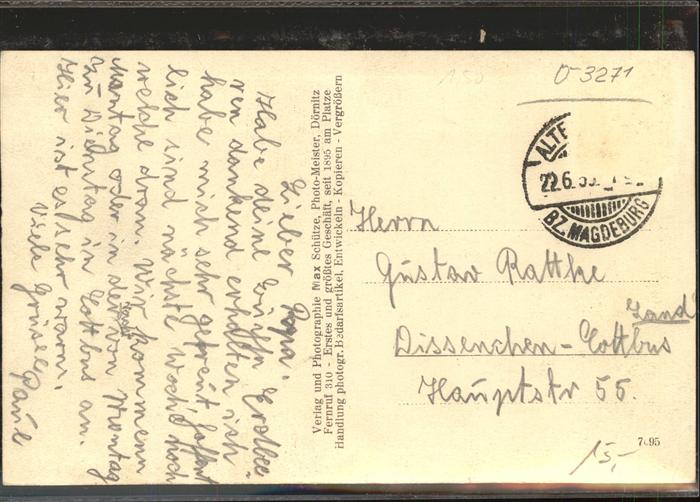 Lieber Papa.
Habe deine Büchse Erdbee-
ren dankend erhalten ich
habe mich sehr gefreut hoffent
lich sind nächste Woche noch
welche dran. Wir kommen
Montag oder in der Nacht von Montag
zu Dienstag in Cottbus an.
Hier ist es sehr warm.
Viele Grüsse
Paul
Verlag und Photographie Max Schütze, Photo-Meister, Dörnitz
Fernruf 310 - Erstes und größtes Geschäft, seit 1895 am Platze
Handlung photogr. Bedarfsartikel, Entwickeln - Kopieren - Vergrößern
0-3271
ALTE
22.6.
BZ. MAGDEBURG
Herrn
Gustav Rattke
Dissenchen-Cottbus
Land
Hauptstr 55.
7695
15,-